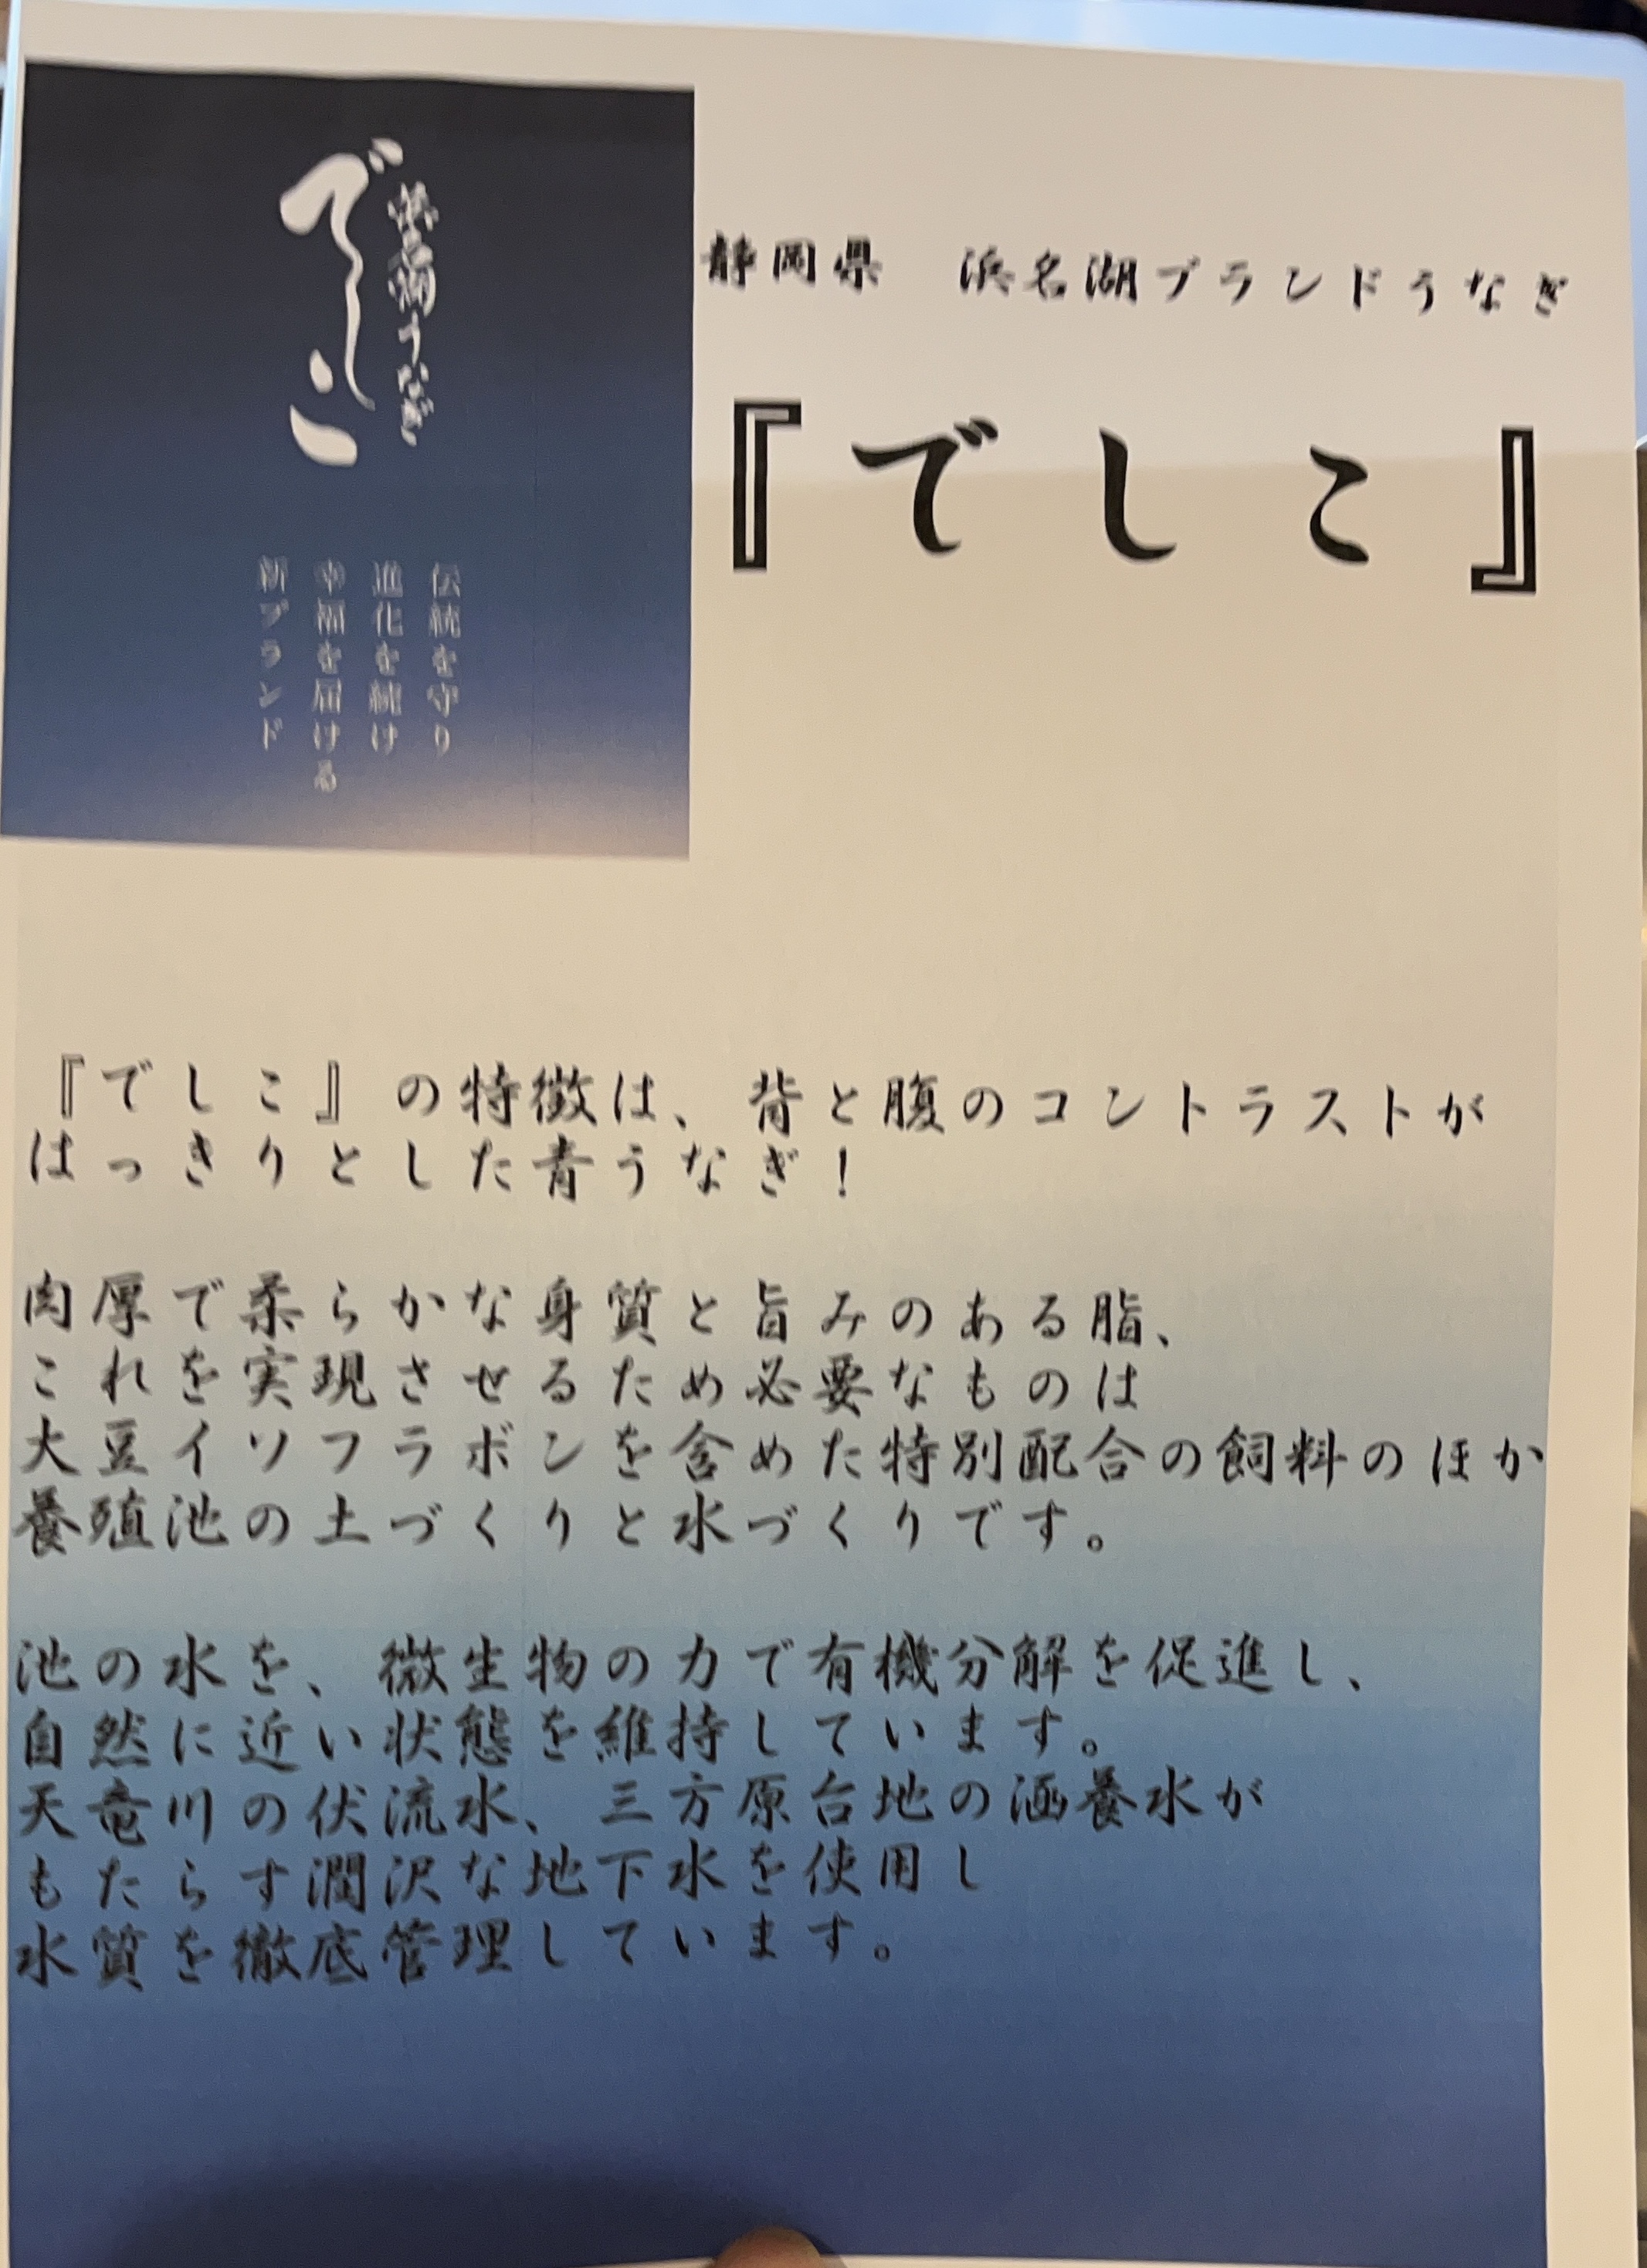 でしこ
浜名湖うなぎ
伝統を守り
進化を続け
幸福を届ける
新ブランド
静岡県　浜名湖ブランドうなぎ
『でしこ』
『でしこ』の特徴は、背と腹のコントラストが
はっきりとした青うなぎ！
肉厚で柔らかな身質と旨みのある脂、
これを実現させるため必要なものは
大豆イソフラボンを含めた特別配合の飼料のほか
養殖池の土づくりと水づくりです。
池の水を、微生物の力で有機分解を促進し、
自然に近い状態を維持しています。
天竜川の伏流水、三方原台地の涵養水が
もたらす潤沢な地下水を使用し
水質を徹底管理しています。